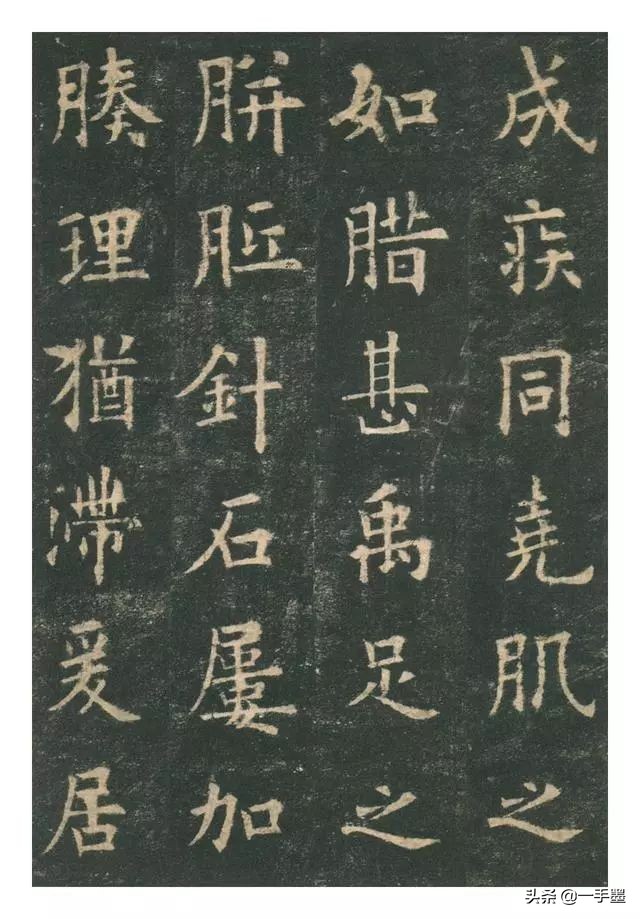 成疾同堯肌之
如腊甚禹足之
胼胝針石屢加
腠理猶滯爰居
头条 @一手墨